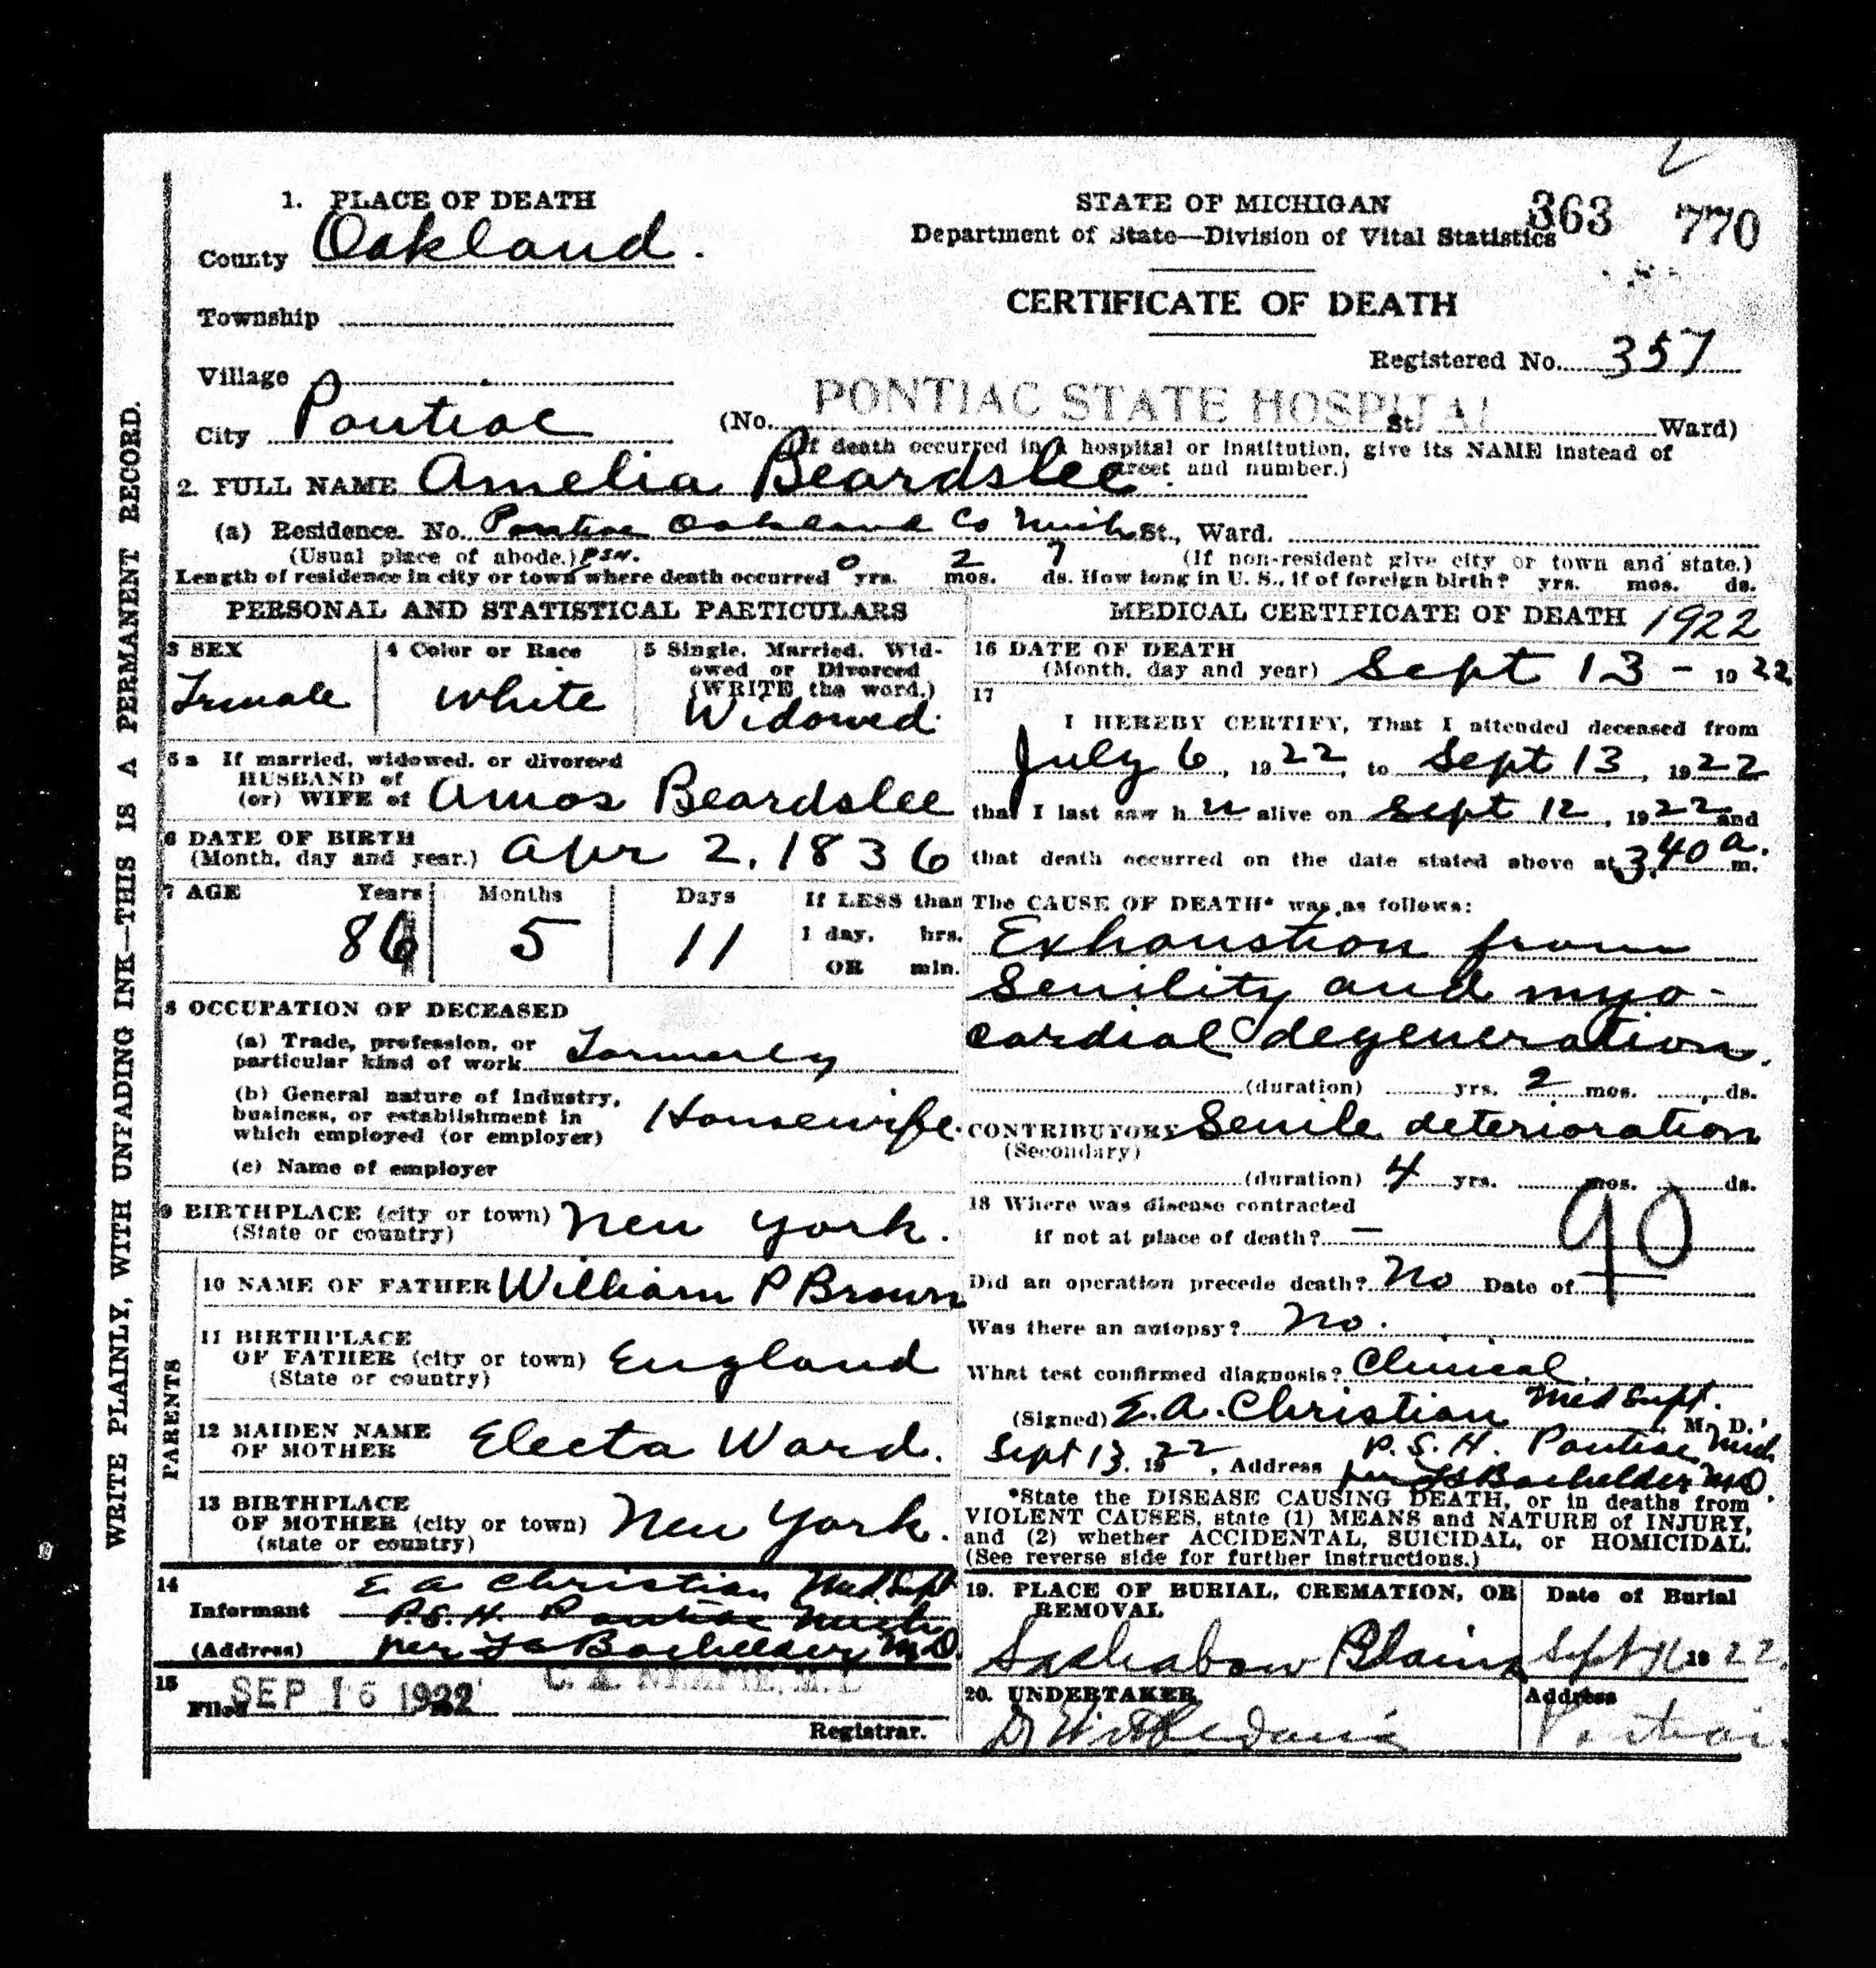 WRITE PLAINLY, WITH UNFADING INK—THIS IS A PERMANENT RECORD.
1. PLACE OF DEATH
County Oakland.
Township
Village
City Pontiac
STATE OF MICHIGAN
Department of State—Division of Vital Statistics
363 770
CERTIFICATE OF DEATH
Registered No. 357
(No. PONTIAC STATE HOSPITAL St. Ward)
(If death occurred in a hospital or institution, give its NAME instead of
street and number.)
2. FULL NAME Amelia Beardslee.
(a) Residence. No. Pontiac Oakland Co Mich St., Ward.
(Usual place of abode.) P.S.H. (If non-resident give city or town and state.)
Length of residence in city or town where death occurred 0 yrs. 2 mos. 7 ds. How long in U. S., if of foreign birth? yrs. mos. ds.
PERSONAL AND STATISTICAL PARTICULARS
3 SEX
Female
4 Color or Race
White
5 Single, Married, Wid-
owed or Divorced
(WRITE the word.)
Widowed.
5a If married, widowed, or divorced
HUSBAND of
(or) WIFE of Amos Beardslee
6 DATE OF BIRTH
(Month, day and year.) Apr 2, 1836
7 AGE Years Months Days If LESS than
86 5 11 1 day, hrs.
OR min.
8 OCCUPATION OF DECEASED
(a) Trade, profession, or
particular kind of work Formerly
(b) General nature of industry,
business, or establishment in
which employed (or employer) Housewife.
(c) Name of employer
9 BIRTHPLACE (city or town) New York.
(State or country)
PARENTS
10 NAME OF FATHER William P Brown
11 BIRTHPLACE
OF FATHER (city or town) England
(State or country)
12 MAIDEN NAME
OF MOTHER Electa Ward.
13 BIRTHPLACE
OF MOTHER (city or town) New York.
(state or country)
14 E A Christian Med Supt
Informant P.S.H. Pontiac Mich
(Address) per Bachelder M.D.
15
Filed SEP 16 1922
Registrar.
MEDICAL CERTIFICATE OF DEATH 1922
16 DATE OF DEATH
(Month, day and year) Sept 13 - 1922
17
I HEREBY CERTIFY, That I attended deceased from
July 6, 1922, to Sept 13, 1922
that I last saw her alive on Sept 12, 1922 and
that death occurred on the date stated above at 3.40 a. m.
The CAUSE OF DEATH* was as follows:
Exhaustion from
Senility and myo-
cardial degeneration.
(duration) yrs. 2 mos. ds.
CONTRIBUTORY Senile deterioration
(Secondary)
(duration) 4 yrs. mos. ds.
90
18 Where was disease contracted
if not at place of death? —
Did an operation precede death? No Date of
Was there an autopsy? No.
What test confirmed diagnosis? Clinical.
(Signed) E. A. Christian Med Supt. M. D.
Sept 13. 1922, Address P. S. H. Pontiac Mich
per Bachelder M.D.
*State the DISEASE CAUSING DEATH, or in deaths from
VIOLENT CAUSES, state (1) MEANS and NATURE of INJURY,
and (2) whether ACCIDENTAL, SUICIDAL, or HOMICIDAL.
(See reverse side for further instructions.)
19. PLACE OF BURIAL, CREMATION, OR
REMOVAL
Sashabaw Plains
Date of Burial
Sept 16 1922.
20. UNDERTAKER,
Address
Pontiac.